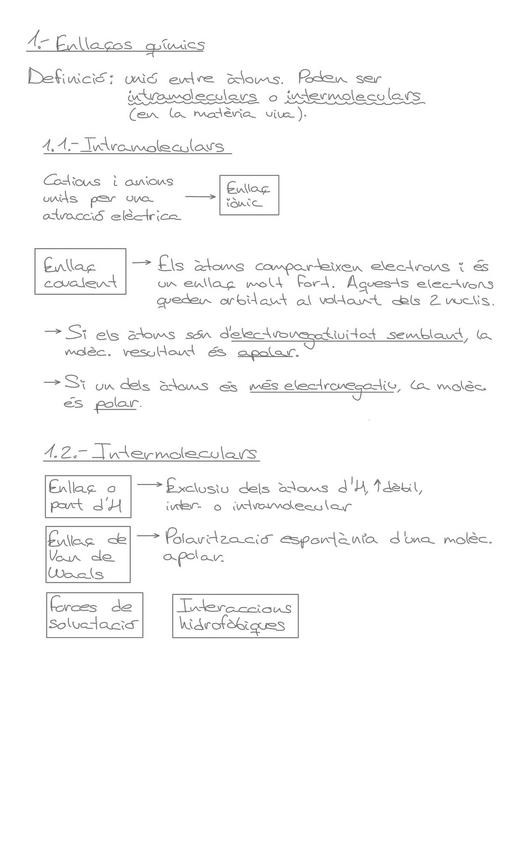 1.- Enllaços químics
Definició: unió entre àtoms. Poden ser
intramoleculars o intermoleculars
(en la matèria viva).
1.1.- Intramoleculars
Cations i anions
units per una
atracció elèctrica
→ Enllaç
iònic
Enllaç
covalent
→ Els àtoms comparteixen electrons i és
un enllaç molt fort. Aquests electrons
queden orbitant al voltant dels 2 nuclis.
→ Si els àtoms són d'electronegativitat semblant, la
molèc. resultant és apolar.
→ Si un dels àtoms és més electronegatiu, la molèc.
és polar.
1.2.- Intermoleculars
Enllaç o
pont d'H
→ Exclusiu dels àtoms d'H, ↑dèbil,
inter- o intramolecular
Enllaç de
Van de
Waals
→ Polarització espontània d'una molèc.
apolar.
Forces de
solvatació
Interaccions
hidrofòbiques